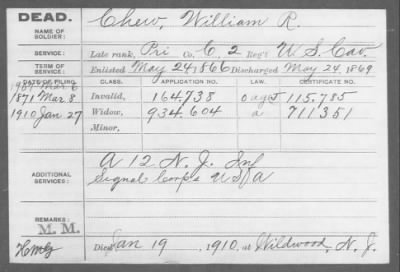 DEAD.
Chew, William R.
NAME OF SOLDIER:
SERVICE:
Late rank, Pri Co. C, 2 Reg't U S Cav.
TERM OF SERVICE:
Enlisted May 24, 1866 Discharged May 24, 1869
DATE OF FILING. CLASS. APPLICATION NO. LAW. CERTIFICATE NO.
Mar 6
1871 Mar 8 Invalid, 164.738 115.785
1910 Jan 27 Widow, 934.604 a 711351
Minor,
ADDITIONAL SERVICES:
A 12 N. J. Inf
Signal Corps U S A
REMARKS:
M. M.
Died Jan 19, 1910, at Wildwood, N. J.